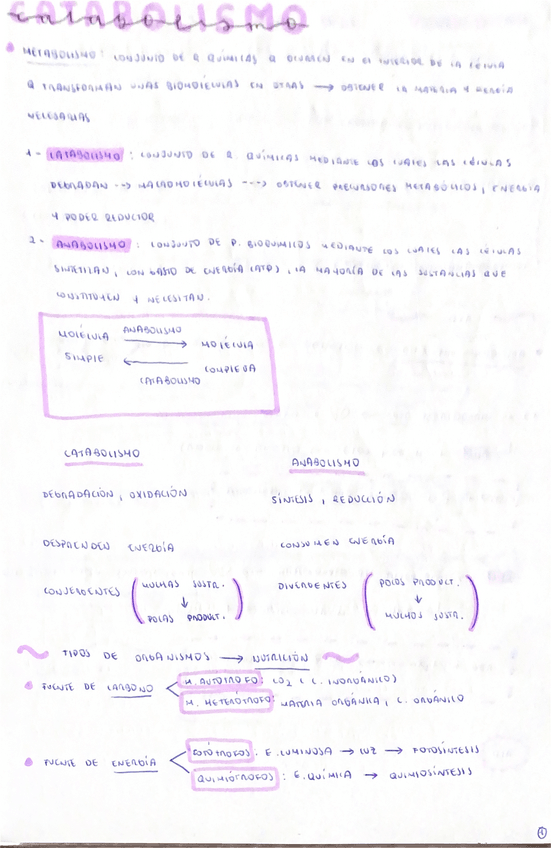 CATABOLISMO
catabolismo
METABOLISMO: CONJUNTO DE R QUÍMICAS Q OCURREN EN EL INTERIOR DE LA CÉLULA
Q TRANSFORMAN UNAS BIOMOLÉCULAS EN OTRAS → OBTENER LA MATERIA Y ENERGÍA
NECESARIAS
1- CATABOLISMO: CONJUNTO DE R. QUÍMICAS MEDIANTE LOS CUALES LAS CÉLULAS
DEGRADAN --> MACROMOLÉCULAS ---> OBTENER PRECURSORES METABÓLICOS, ENERGÍA
Y PODER REDUCTOR
2- ANABOLISMO: CONJUNTO DE P. BIOQUIMICOS MEDIANTE LOS CUALES LAS CÉLULAS
SINTETIZAN, CON GASTO DE ENERGÍA (ATP), LA MAYORÍA DE LAS SUSTANCIAS QUE
CONSTITUYEN Y NECESITAN.
MOLÉCULA ANABOLISMO → MOLÉCULA
SIMPLE ← COMPLEJA
CATABOLISMO
CATABOLISMO ANABOLISMO
DEGRADACIÓN, OXIDACIÓN SÍNTESIS, REDUCCIÓN
DESPRENDEN ENERGÍA CONSUMEN ENERGÍA
CONVERGENTES (MUCHAS SUSTR. ↓ POCAS PRODUCT.) DIVERGENTES (POCOS PRODUCT. ↓ MUCHOS SUSTR.)
TIPOS DE ORGANISMOS → NUTRICIÓN
FUENTE DE CARBONO
M. AUTÓTROFO: CO2 (C. INORGÁNICO)
M. HETERÓTROFO: MATERIA ORGÁNICA, C. ORGÁNICO
FUENTE DE ENERGÍA
FOTÓTROFOS: E. LUMINOSA → LUZ → FOTOSÍNTESIS
QUIMIÓTROFOS: E. QUÍMICA → QUIMIOSÍNTESIS
1